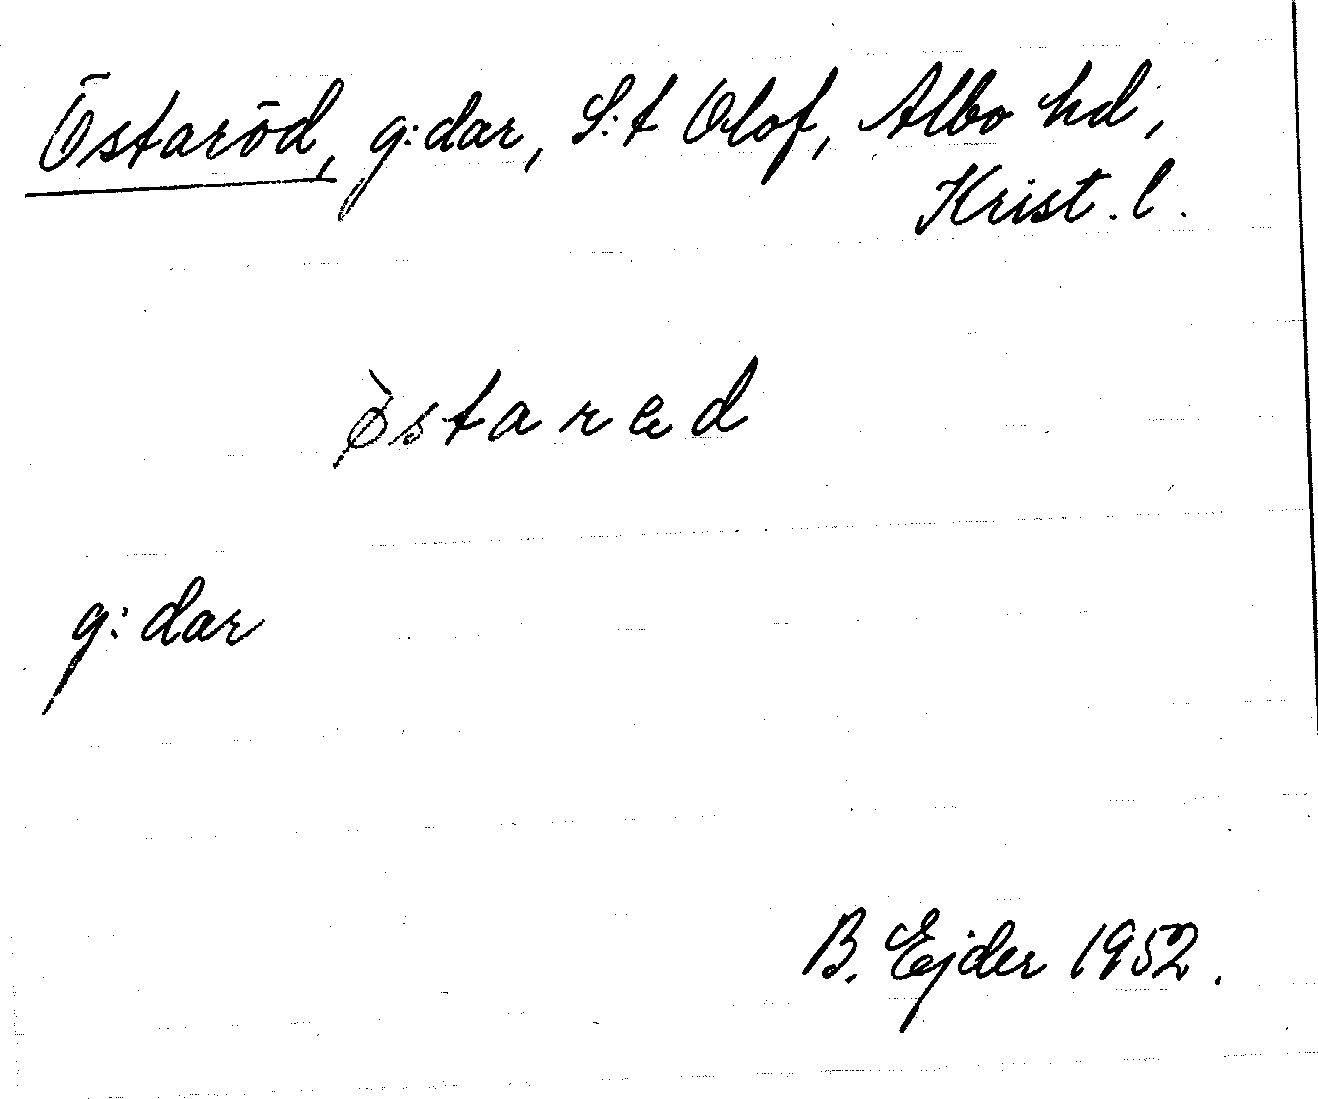 Östaröd, g:dar, S:t Olof, Albo hd,
Krist. l.
ø̀stared
g:dar
B. Ejder 1952.